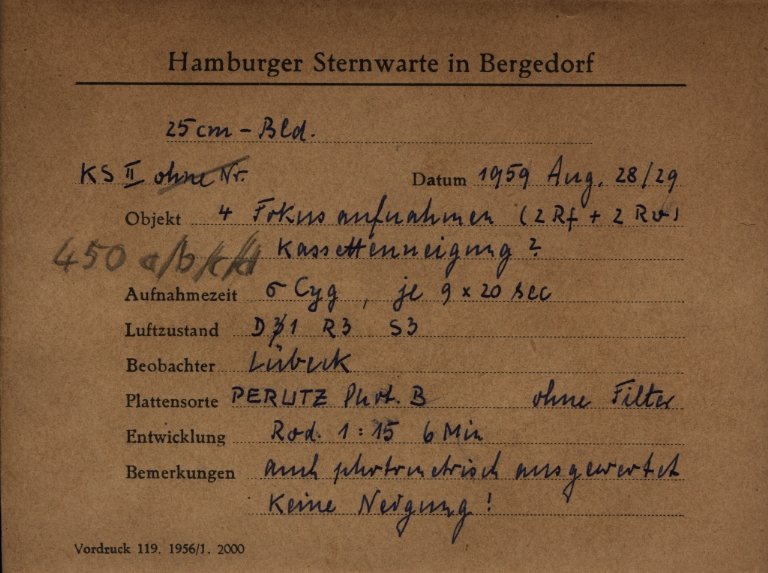 Hamburger Sternwarte in Bergedorf
25cm-Bld.
KS II ohne Nr. Datum 1959 Aug. 28/29
Objekt 4 Fokusaufnahmen (2 Rf + 2 Rv)
450 a/b/c/d Kassettenneigung?
Aufnahmezeit σ Cyg, je 9 x 20 sec
Luftzustand D31 R3 S3
Beobachter Lübeck
Plattensorte PERUTZ Phot. B ohne Filter
Entwicklung Rod. 1:15 6 Min
Bemerkungen auch photometrisch ausgewertet
Keine Neigung!
Vordruck 119. 1956/1. 2000